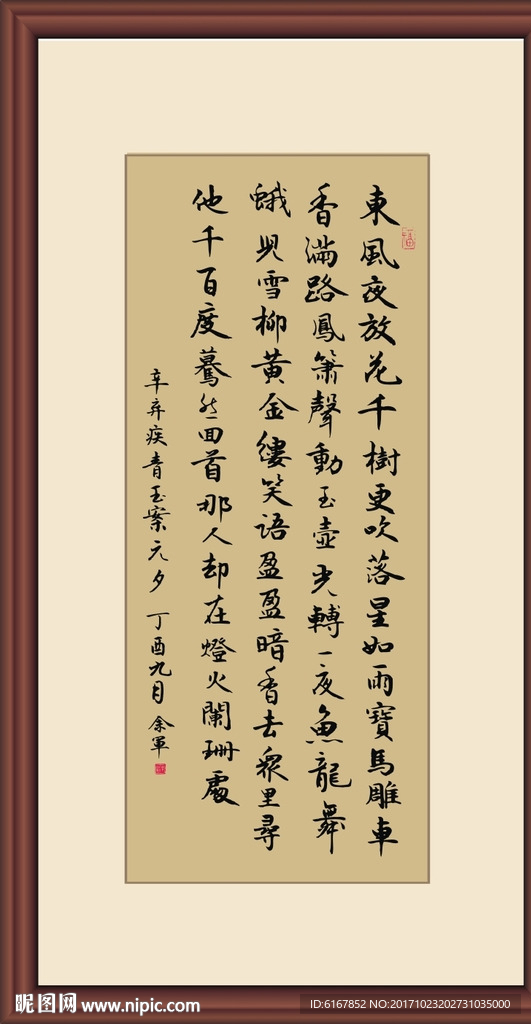 東風夜放花千樹更吹落星如雨寶馬雕車
香滿路鳳簫聲動玉壺光轉一夜魚龍舞
蛾兒雪柳黃金縷笑語盈盈暗香去衆里尋
他千百度驀然回首那人却在燈火闌珊處
辛弃疾青玉案元夕 丁酉九月 余軍
昵图网 www.nipic.com
ID:6167852 NO:20171023202731035000